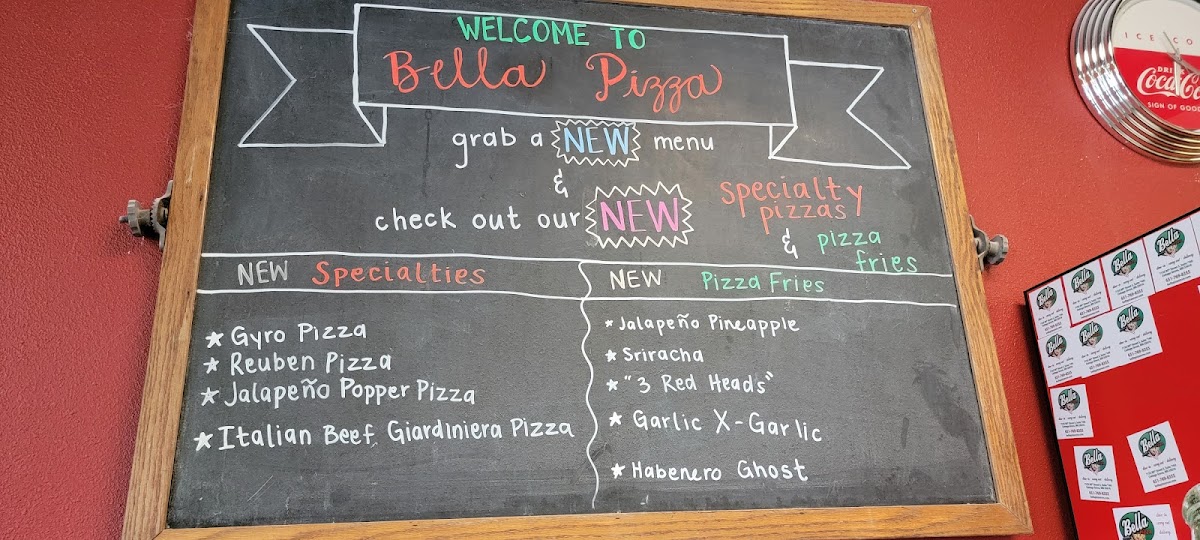 WELCOME TO
Bella Pizza
grab a NEW menu
&
check out our NEW
specialty
pizzas
&
pizza
fries
NEW Specialties
★ Gyro Pizza
★ Reuben Pizza
★ Jalapeño Popper Pizza
★ Italian Beef Giardiniera Pizza
NEW Pizza Fries
★ Jalapeño Pineapple
★ Sriracha
★ "3 Red Head's"
★ Garlic X-Garlic
★ Habenero Ghost
ICE CO
DRINK
Coca-Co
SIGN OF GOOD
Bella
Bella
Bella
Bella
Bella
Bella
Bella
Bella
Bella
Bella